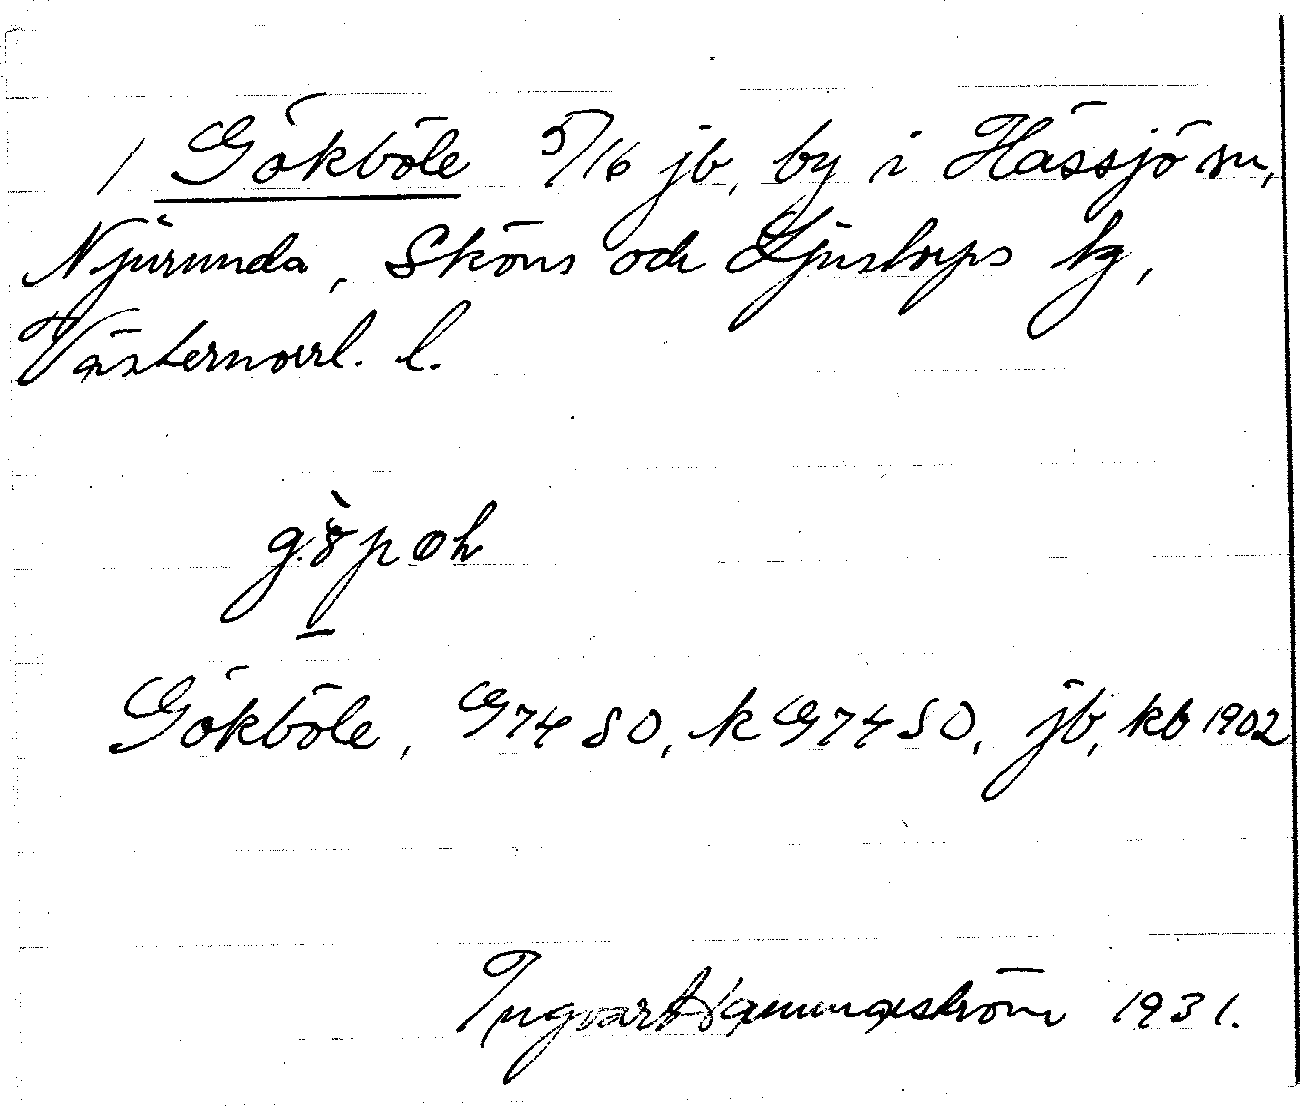 / Gökböle 5/16 jb, by i Hässjö sn,
Njurunda, Sköns och Ljustorps tg,
Västernorrl. l.
Gökböle, G74 SO, k G74 SO, jb, kb 1902
Ingvar Hammarström 1931.